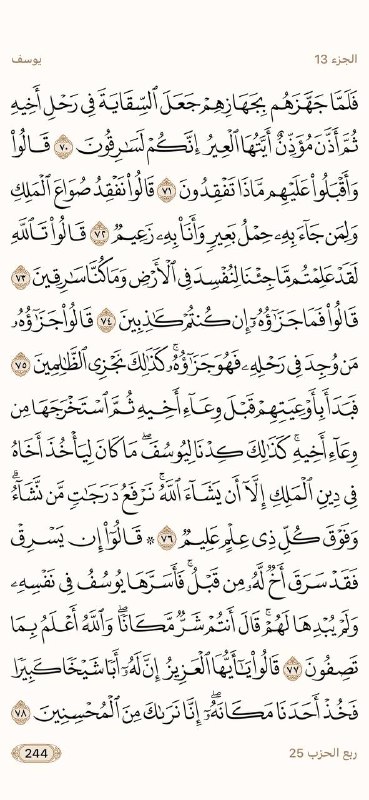 الجزء 13
يوسف
فَلَمَّا جَهَّزَهُم بِجَهَازِهِمْ جَعَلَ ٱلسِّقَايَةَ فِى رَحْلِ أَخِيهِ
ثُمَّ أَذَّنَ مُؤَذِّنٌ أَيَّتُهَا ٱلْعِيرُ إِنَّكُمْ لَسَـٰرِقُونَ ٧٠ قَالُوا۟
وَأَقْبَلُوا۟ عَلَيْهِم مَّاذَا تَفْقِدُونَ ٧١ قَالُوا۟ نَفْقِدُ صُوَاعَ ٱلْمَلِكِ
وَلِمَن جَآءَ بِهِۦ حِمْلُ بَعِيرٍ وَأَنَا۠ بِهِۦ زَعِيمٌ ٧٢ قَالُوا۟ تَٱللَّهِ
لَقَدْ عَلِمْتُم مَّا جِئْنَا لِنُفْسِدَ فِى ٱلْأَرْضِ وَمَا كُنَّا سَـٰرِقِينَ ٧٣
قَالُوا۟ فَمَا جَزَٰٓؤُهُۥٓ إِن كُنتُمْ كَـٰذِبِينَ ٧٤ قَالُوا۟ جَزَٰٓؤُهُۥ
مَن وُجِدَ فِى رَحْلِهِۦ فَهُوَ جَزَٰٓؤُهُۥ ۚ كَذَٰلِكَ نَجْزِى ٱلظَّـٰلِمِينَ ٧٥
فَبَدَأَ بِأَوْعِيَتِهِمْ قَبْلَ وِعَآءِ أَخِيهِ ثُمَّ ٱسْتَخْرَجَهَا مِن
وِعَآءِ أَخِيهِ ۚ كَذَٰلِكَ كِدْنَا لِيُوسُفَ ۖ مَا كَانَ لِيَأْخُذَ أَخَاهُ
فِى دِينِ ٱلْمَلِكِ إِلَّآ أَن يَشَآءَ ٱللَّهُ ۚ نَرْفَعُ دَرَجَـٰتٍ مَّن نَّشَآءُ ۗ
وَفَوْقَ كُلِّ ذِى عِلْمٍ عَلِيمٌ ٧٦ ۞ قَالُوٓا۟ إِن يَسْرِقْ
فَقَدْ سَرَقَ أَخٌ لَّهُۥ مِن قَبْلُ ۚ فَأَسَرَّهَا يُوسُفُ فِى نَفْسِهِۦ
وَلَمْ يُبْدِهَا لَهُمْ ۚ قَالَ أَنتُمْ شَرٌّ مَّكَانًا ۖ وَٱللَّهُ أَعْلَمُ بِمَا
تَصِفُونَ ٧٧ قَالُوا۟ يَـٰٓأَيُّهَا ٱلْعَزِيزُ إِنَّ لَهُۥٓ أَبًا شَيْخًا كَبِيرًا
فَخُذْ أَحَدَنَا مَكَانَهُۥٓ ۖ إِنَّا نَرَىٰكَ مِنَ ٱلْمُحْسِنِينَ ٧٨
ربع الحزب 25
244